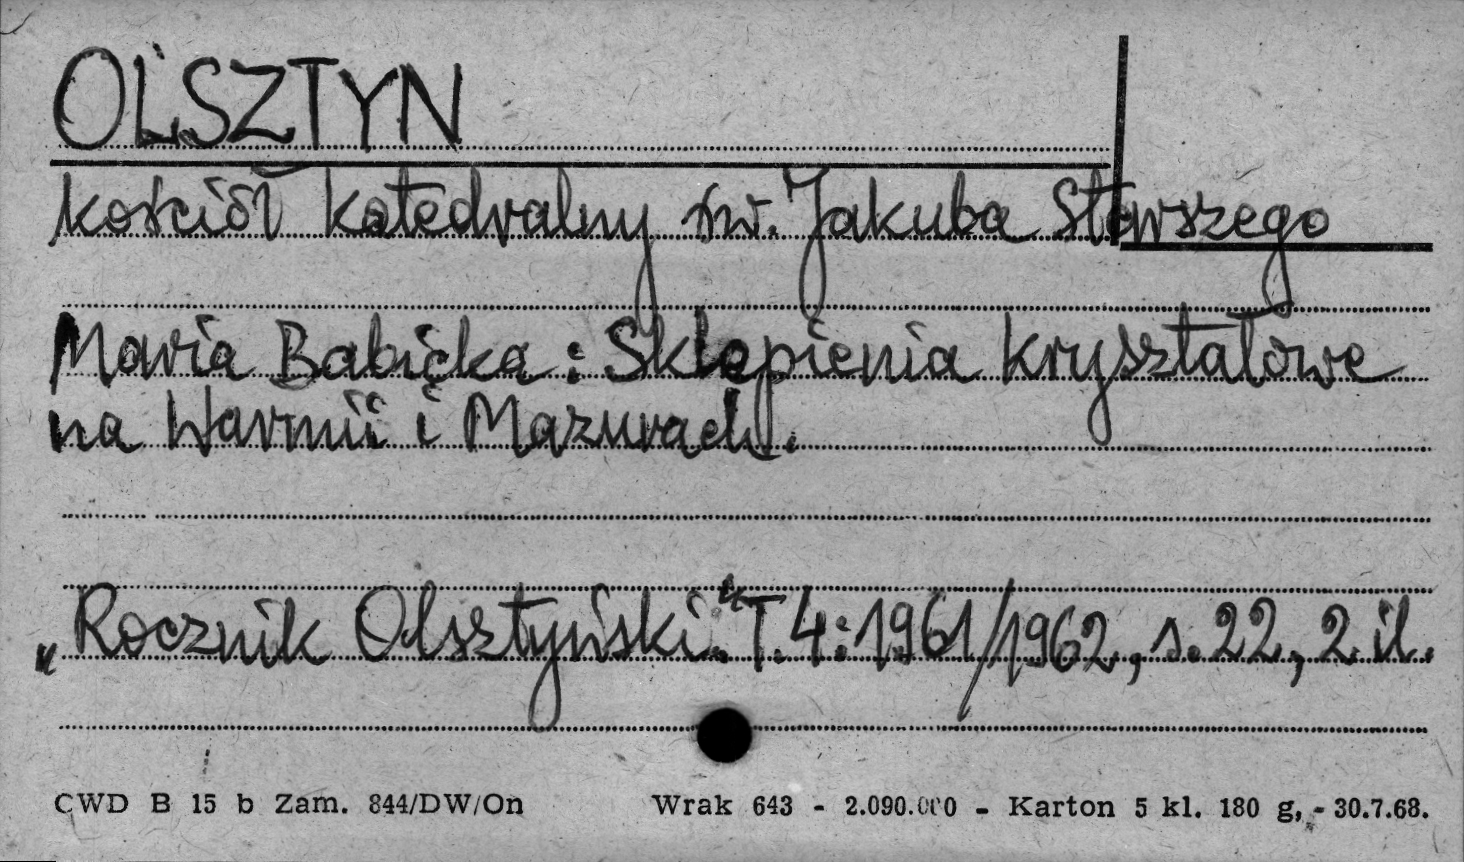 OLSZTYN
kościół katedralny św. Jakuba Starszego
Maria Babicka: Sklepienia kryształowe
na Warmii i Mazurach.
„Rocznik Olsztyński." T.4:1961/1962, s.22, 2 il.
CWD B 15 b Zam. 844/DW/On Wrak 643 - 2.090.000 - Karton 5 kl. 180 g, - 30.7.68.